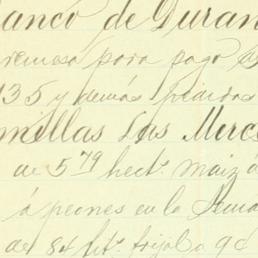 Banco de Duran
remesa para pago
135 y demás pedidos
milla Las Merce
de 579 hect. maiz a
á peones en la Sema
de 84 lit. frijol a 9c